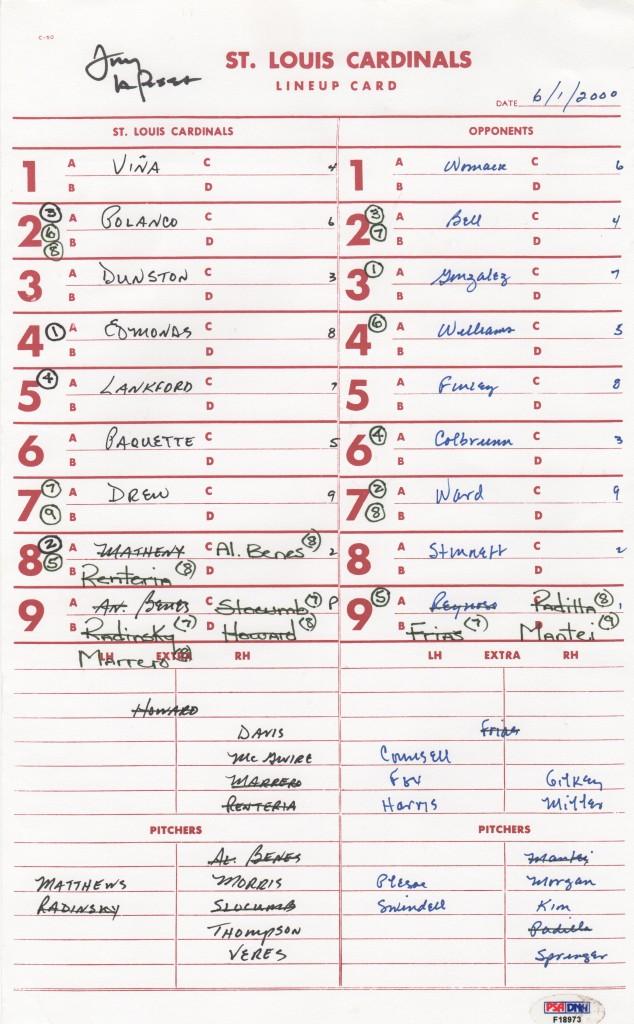 C-50
Tony La Russa
ST. LOUIS CARDINALS
LINEUP CARD
DATE 6/1/2000
ST. LOUIS CARDINALS
1 A VIÑA C 4
B D
2 A POLANCO C 6
B D
3 6 8
3 A DUNSTON C 3
B D
4 A EDMONDS C 8
B D
1
5 A LANKFORD C 7
B D
4
6 A PAQUETTE C 5
B D
7 A DREW C 9
B D
7 9
8 A MATHENY C Al. Benes (8) 2
B Renteria (8) D
2 5
9 A AN. BENES C Slocumb (7) P
B Radinsky (7) D Howard (8)
Marrero (8)
LH EXTRA RH
HOWARD
DAVIS
McGWIRE
MARRERO
RENTERIA
PITCHERS
AL. BENES
MATTHEWS MORRIS
RADINSKY SLOCUMB
THOMPSON
VERES
OPPONENTS
1 A Womack C 6
B D
2 A Bell C 4
B D
3 7
3 A Gonzalez C 7
B D
1
4 A Williams C 5
B D
6
5 A Finley C 8
B D
6 A Colbrunn C 3
B D
4
7 A Ward C 9
B D
2 8
8 A Stinnett C 2
B D
9 A Reynoso C Padilla (8) 1
B Frias (7) D Mantei (9)
5
LH EXTRA RH
Frias
Counsell
Fox Gilkey
Harris Miller
PITCHERS
Mantei
Plesac Morgan
Swindell Kim
Padilla
Springer
PSA/DNA
F18973